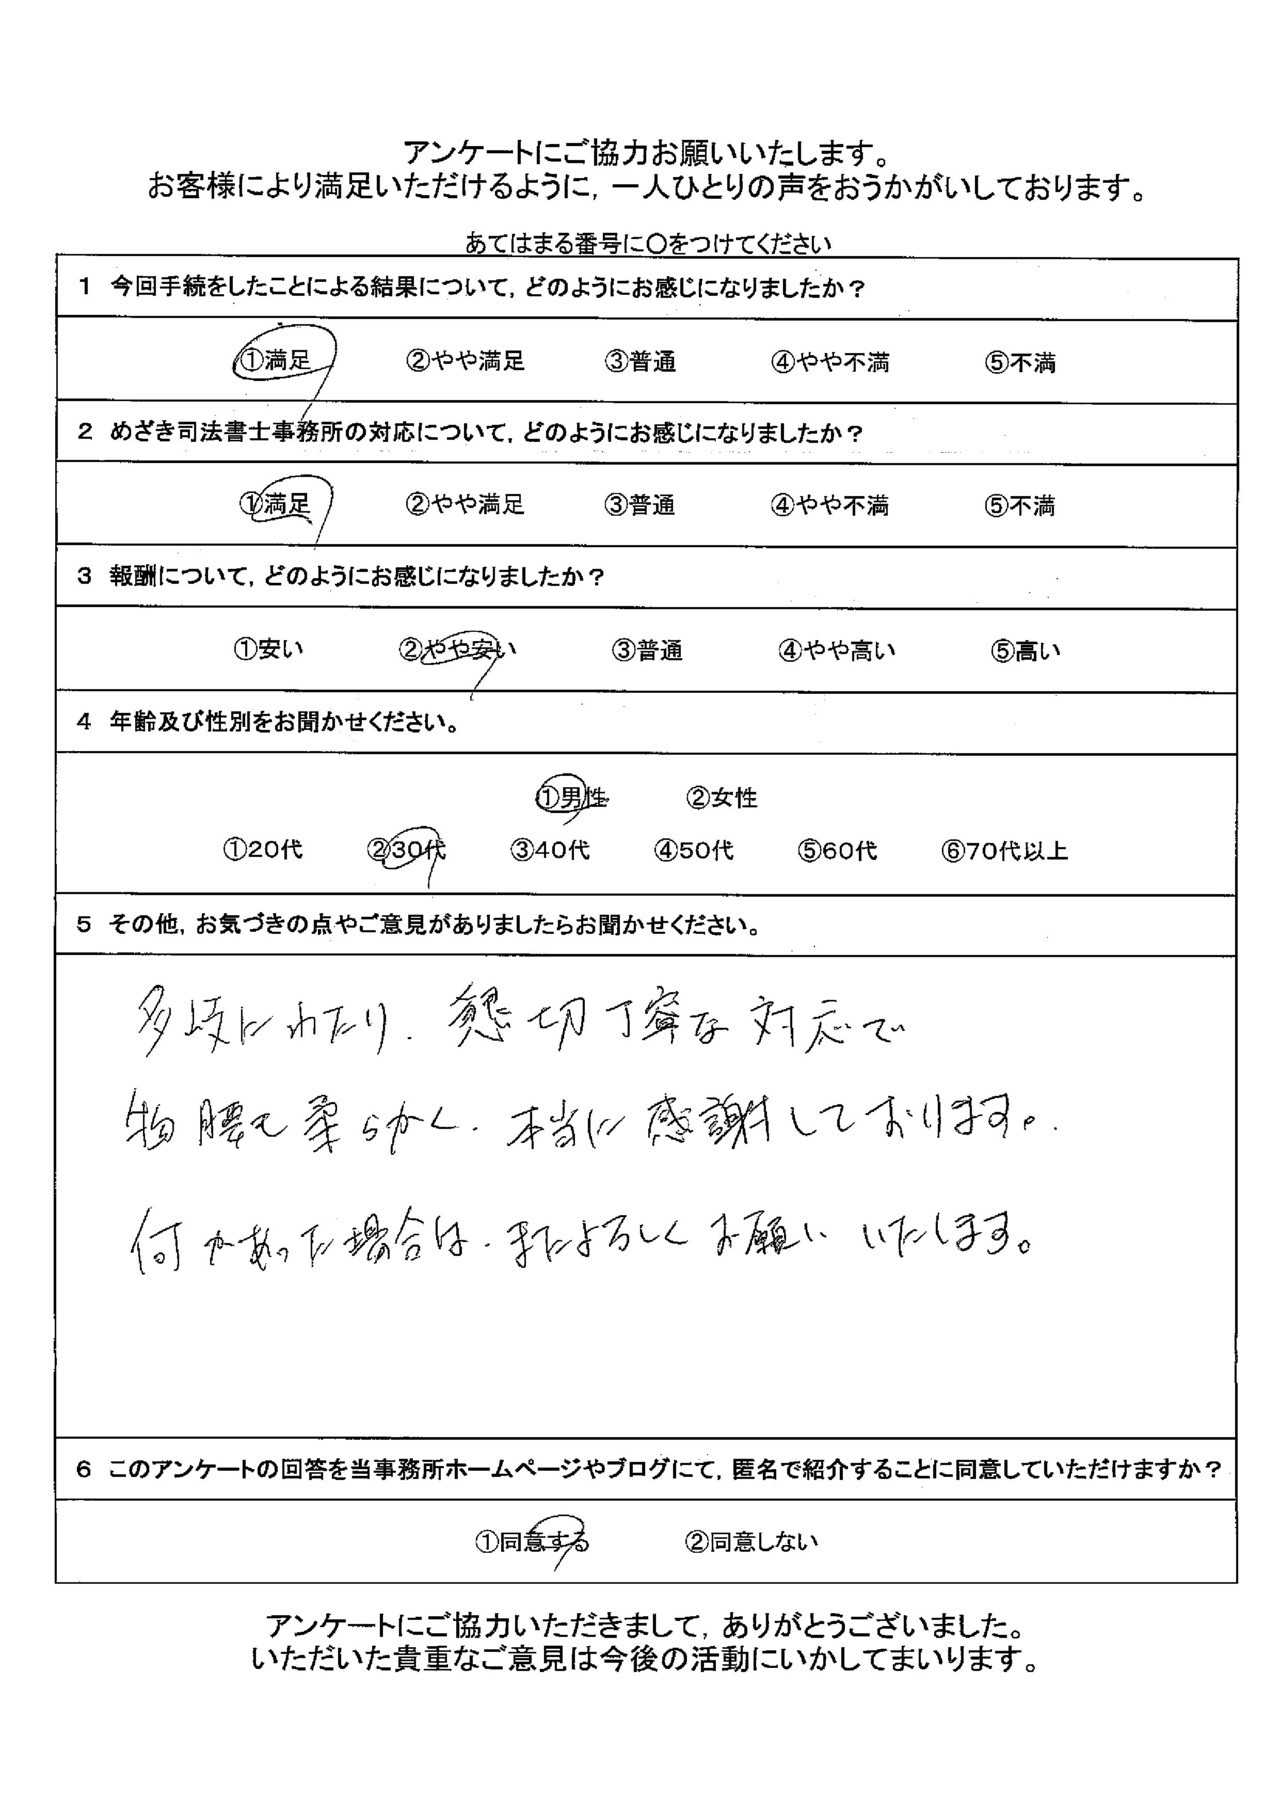 アンケートにご協力お願いいたします。
お客様により満足いただけるように, 一人ひとりの声をおうかがいしております。
あてはまる番号に〇をつけてください
1 今回手続をしたことによる結果について, どのようにお感じになりましたか？
①満足 ②やや満足 ③普通 ④やや不満 ⑤不満
2 めざき司法書士事務所の対応について, どのようにお感じになりましたか？
①満足 ②やや満足 ③普通 ④やや不満 ⑤不満
3 報酬について, どのようにお感じになりましたか？
①安い ②やや安い ③普通 ④やや高い ⑤高い
4 年齢及び性別をお聞かせください。
①男性 ②女性
①20代 ②30代 ③40代 ④50代 ⑤60代 ⑥70代以上
5 その他, お気づきの点やご意見がありましたらお聞かせください。
多岐にわたり、懇切丁寧な対応で
物腰も柔らかく、本当に感謝しております。
何かあった場合は、またよろしくお願いいたします。
6 このアンケートの回答を当事務所ホームページやブログにて, 匿名で紹介することに同意していただけますか？
①同意する ②同意しない
アンケートにご協力いただきまして, ありがとうございました。
いただいた貴重なご意見は今後の活動にいかしてまいります。